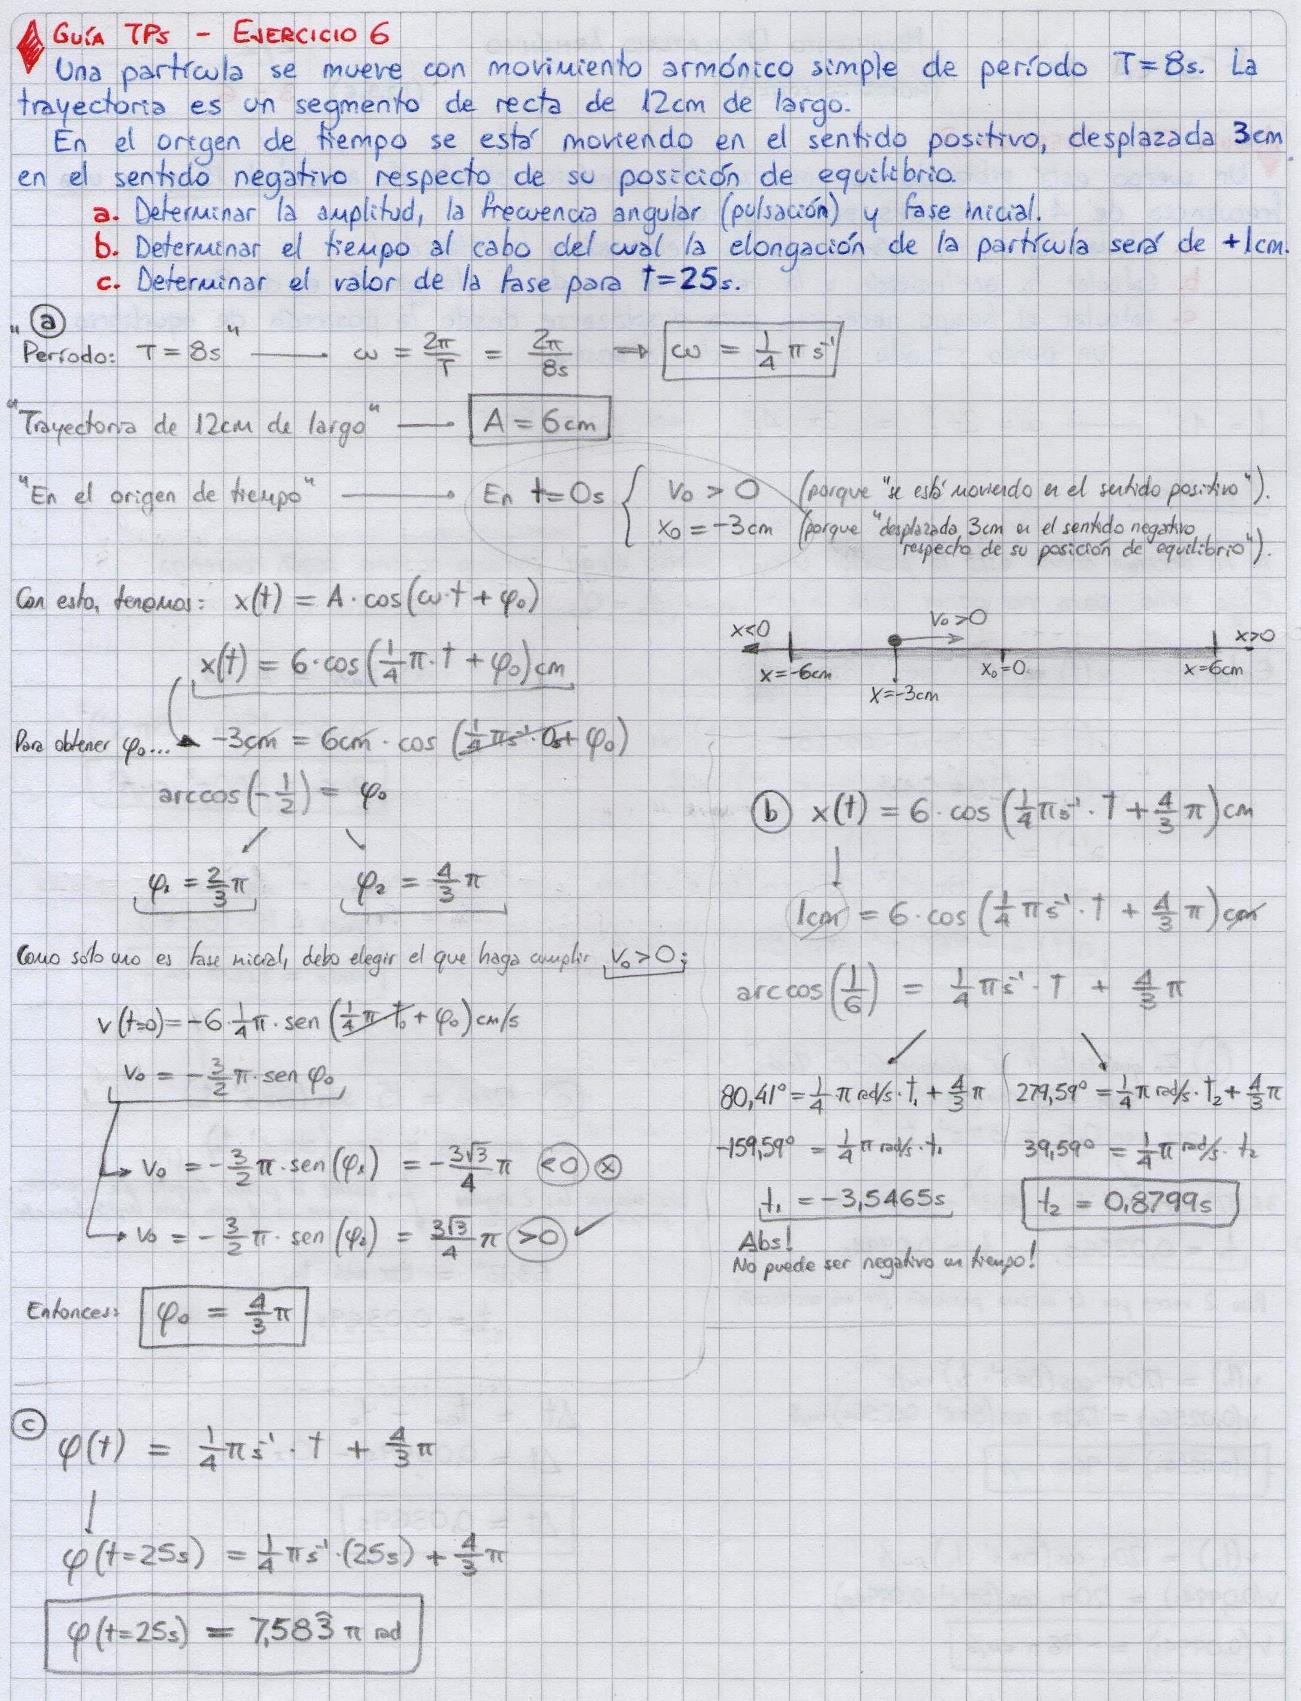 GUÍA TPs - EJERCICIO 6
Una partícula se mueve con movimiento armónico simple de período T=8s. La
trayectoria es un segmento de recta de 12cm de largo.
En el origen de tiempo se está moviendo en el sentido positivo, desplazada 3cm
en el sentido negativo respecto de su posición de equilibrio.
a. Determinar la amplitud, la frecuencia angular (pulsación) y fase inicial.
b. Determinar el tiempo al cabo del cual la elongación de la partícula será de +1cm.
c. Determinar el valor de la fase para t=25s.
ⓐ
"Período: T=8s" —— ω = 2π/T = 2π/8s ⇒ ω = 1/4 π s⁻¹
"Trayectoria de 12cm de largo" —— A = 6cm
"En el origen de tiempo" —— En t=0s { V₀ > 0 (porque "se está moviendo en el sentido positivo").
x₀ = -3cm (porque "desplazada 3cm en el sentido negativo
respecto de su posición de equilibrio").
Con esto, tenemos: x(t) = A · cos(ω·t + φ₀)
x(t) = 6·cos(1/4 π · t + φ₀)cm
x<0 V₀>0 x>0
x=-6cm x=-3cm x₀=0 x=6cm
Para obtener φ₀... → -3cm = 6cm · cos (1/4 πs⁻¹ · 0s + φ₀)
arccos(-1/2) = φ₀
φ₁ = 2/3 π φ₂ = 4/3 π
Como sólo uno es fase inicial, debo elegir el que haga cumplir V₀>0:
v(t=0) = -6·1/4 π · sen (1/4 π t₀ + φ₀) cm/s
V₀ = -3/2 π · sen φ₀
→ V₀ = -3/2 π · sen(φ₁) = -3√3/4 π <0 ⓧ
→ V₀ = -3/2 π · sen(φ₂) = 3√3/4 π >0 ✓
Entonces: φ₀ = 4/3 π
ⓑ x(t) = 6 · cos (1/4 πs⁻¹ · t + 4/3 π)cm
1cm = 6 · cos (1/4 πs⁻¹ · t + 4/3 π)cm
arccos(1/6) = 1/4 πs⁻¹ · t + 4/3 π
80,41° = 1/4 π rad/s · t₁ + 4/3 π
-159,59° = 1/4 π rad/s · t₁
t₁ = -3,5465s
Abs!
No puede ser negativo un tiempo!
279,59° = 1/4 π rad/s · t₂ + 4/3 π
39,59° = 1/4 π rad/s · t₂
t₂ = 0,8799s
ⓒ φ(t) = 1/4 πs⁻¹ · t + 4/3 π
φ(t=25s) = 1/4 πs⁻¹ · (25s) + 4/3 π
φ(t=25s) = 7,583̂ π rad